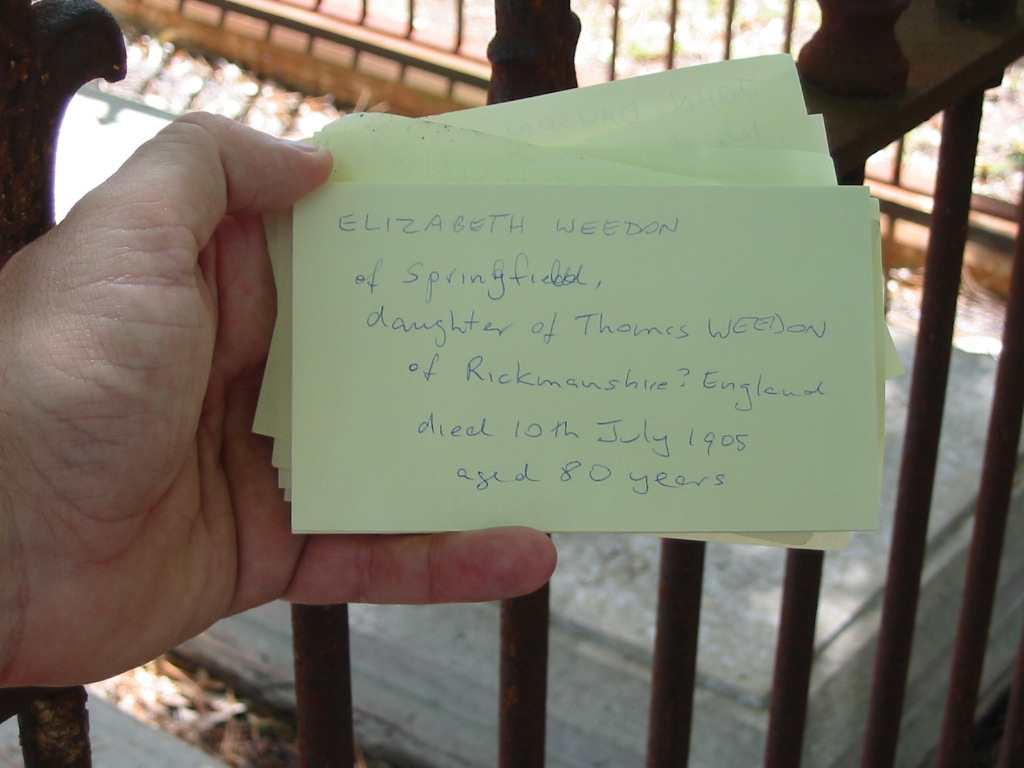 JOHN DAWSON
late of
ELIZABETH WEEDON
of Springfield,
daughter of Thomas WEEDON
of Rickmanshire? England
died 10th July 1905
aged 80 years